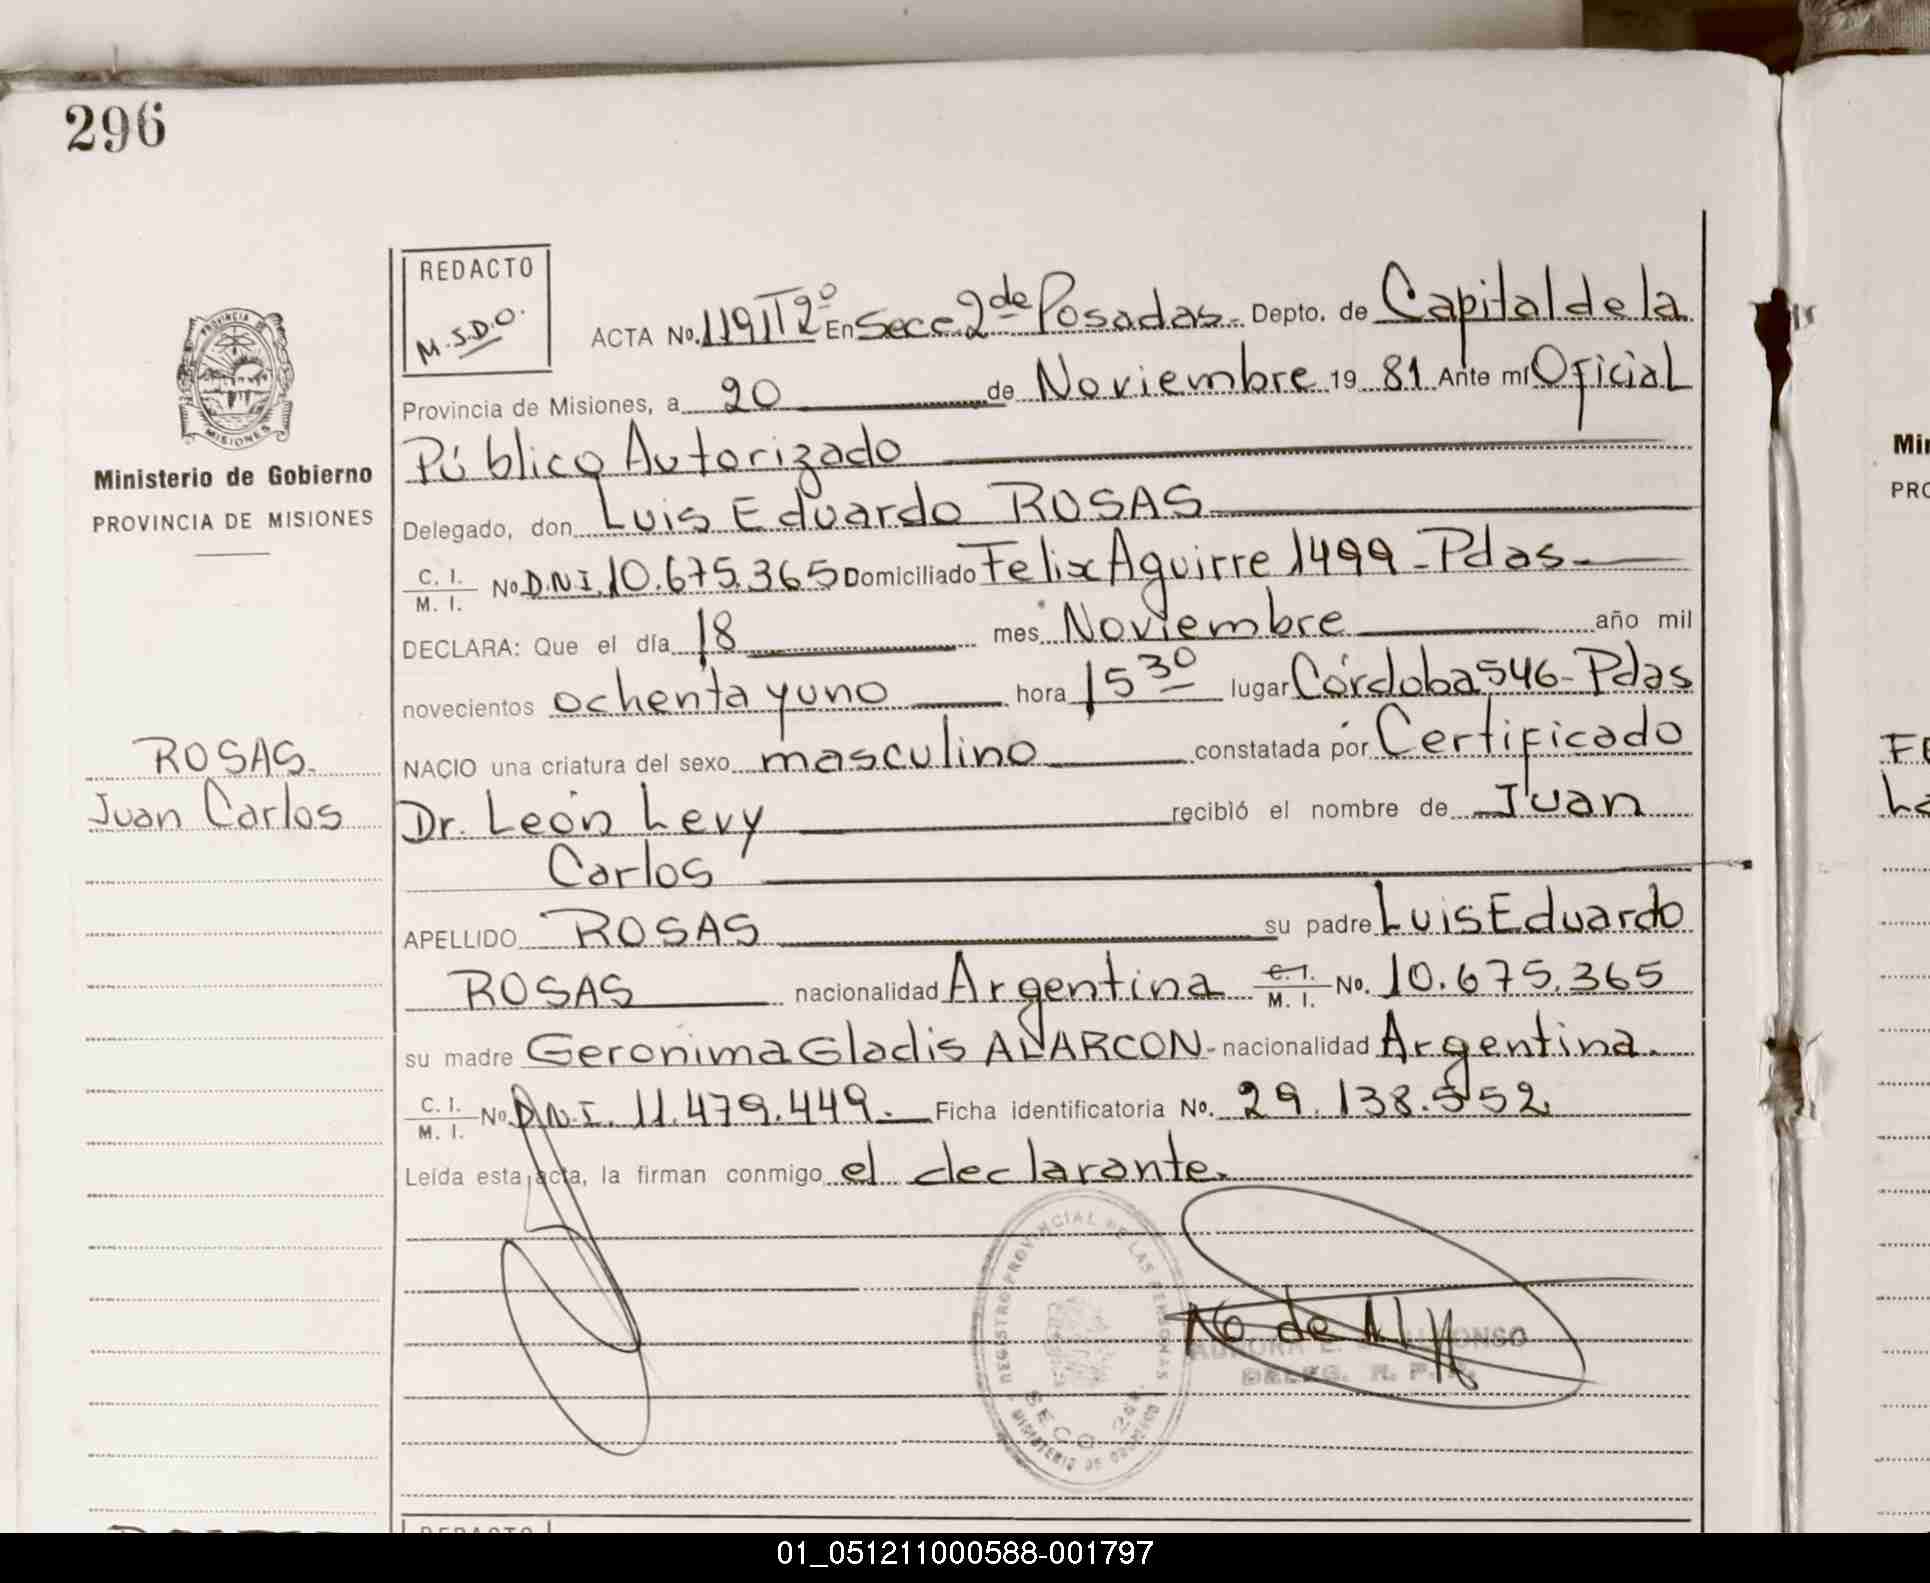 296
REDACTO
M.S.D.O.
ACTA No. 1191 T 2º En Secc. 2da de Posadas - Depto. de Capital de la
Provincia de Misiones, a 20 de Noviembre 19 81 Ante mí Oficial
Público Autorizado
Delegado, don Luis Eduardo ROSAS
C. I.
M. I. No D.N.I. 10.675.365 Domiciliado Felix Aguirre 1499 - Pdas -
DECLARA: Que el día 18 mes Noviembre año mil
novecientos ochenta y uno hora 15 30 lugar Córdoba 546 - Pdas
NACIO una criatura del sexo masculino constatada por Certificado
Dr. León Levy recibió el nombre de Juan
Carlos
APELLIDO ROSAS su padre Luis Eduardo
ROSAS nacionalidad Argentina C. I. M. I. No. 10.675.365
su madre Geronima Gladis ALARCON - nacionalidad Argentina.
C. I.
M. I. No. D.N.I. 11.479.449. Ficha identificatoria No. 29.138.552.
Leída esta acta, la firman conmigo el declarante.
PROVINCIA DE
MISIONES
Ministerio de Gobierno
PROVINCIA DE MISIONES
ROSAS.
Juan Carlos
REGISTRO PROVINCIAL DE LAS PERSONAS
SECC 2da
MINISTERIO DE GOBIERNO
DELEG. R. P. P.
REDACTO
Min
PRO
01_051211000588-001797